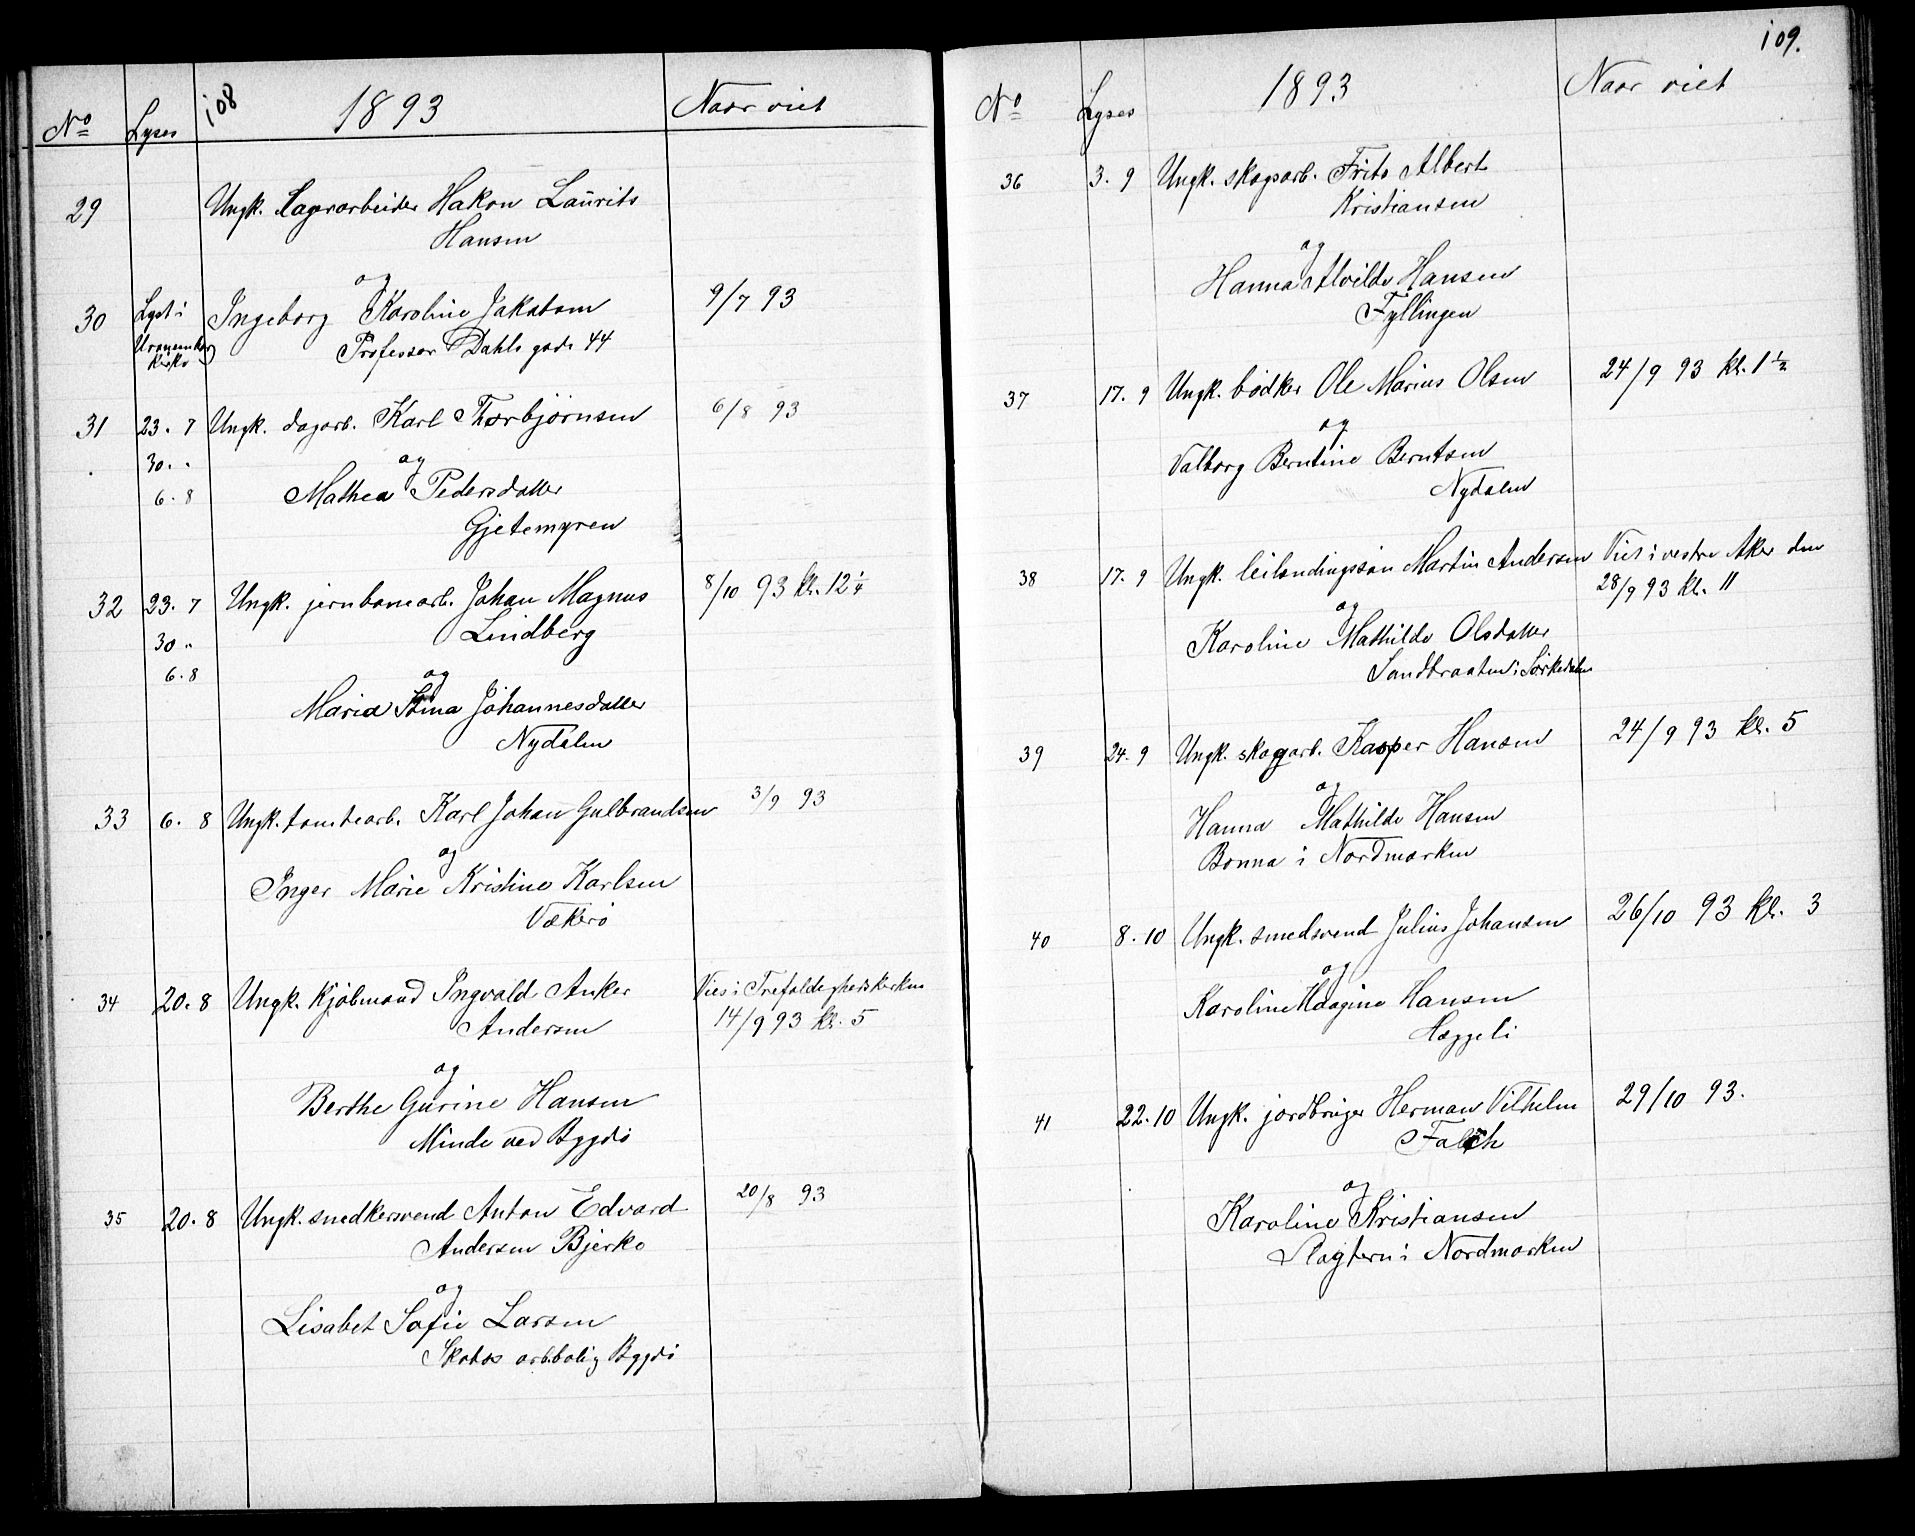 108
1893
Naar viet
No Lyses
29 Ungk. Lagerarbeider Hakon Laurits
Hansen
og
30 Lyst i Ingeborg Karoline Jakobsen 9/7 93
Uranienborg Professor Dahls gade 44
kirke
31 23. 7 Ungk. dagarb. Karl Thorbjørnsen 6/8 93
30. "
og
6. 8 Mathea Pedersdatter
Gjetemyren
32 23. 7 Ungk. jernbanearb. Johan Magnus 8/10 93 kl. 12 1/4
30 " Lindberg
6. 8 og
Maria Stina Johannesdatter
Nydalen
33 6. 8 Ungk. tomtearb. Karl Johan Gulbrandsen 3/9 93
og
Inger Marie Kristine Karlsen
Vækerø
34 20. 8 Ungk. Kjøbmand Ingvald Anker Vies i Trefoldighedskirken
Andersen 14/9 93 kl. 5
og
Berthe Gurine Hansen
Minde ved Bygdø
35 20. 8 Ungk. snedkersvend Anton Edvard 20/8 93
Andersen Bjerke
og
Lisabet Sofie Larsen
arb.bolig Bygdø
109.
No Lyses 1893 Naar viet
36 3. 9 Ungk. skogsarb. Frits Albert
Kristiansen
og
Hanna Alvilde Hansen
Fyllingen
37 17. 9 Ungk. bødker Ole Marius Olsen 24/9 93 kl. 1 1/2
og
Valborg Berntine Berntsen
Nydalen
38 17. 9 Ungk. leilendingssøn Martin Andersen Viet i vestre Aker den
28/9 93 kl. 11
og
Karoline Mathilde Olsdatter
Sandbraaten i Sørkedalen
39 24. 9 Ungk. skogarb. Kasper Hansen 24/9 93 kl. 5
og
Hanna Mathilde Hansen
Bonna i Nordmarken
40 8. 10 Ungk. smedsvend Julius Johansen 26/10 93 kl. 3
og
Karoline Haagine Hansen
Heggeli
41 22. 10 Ungk. jordbruger Herman Vilhelm 29/10 93.
Falch
og
Karoline Kristiansen
Slagtern i Nordmarken